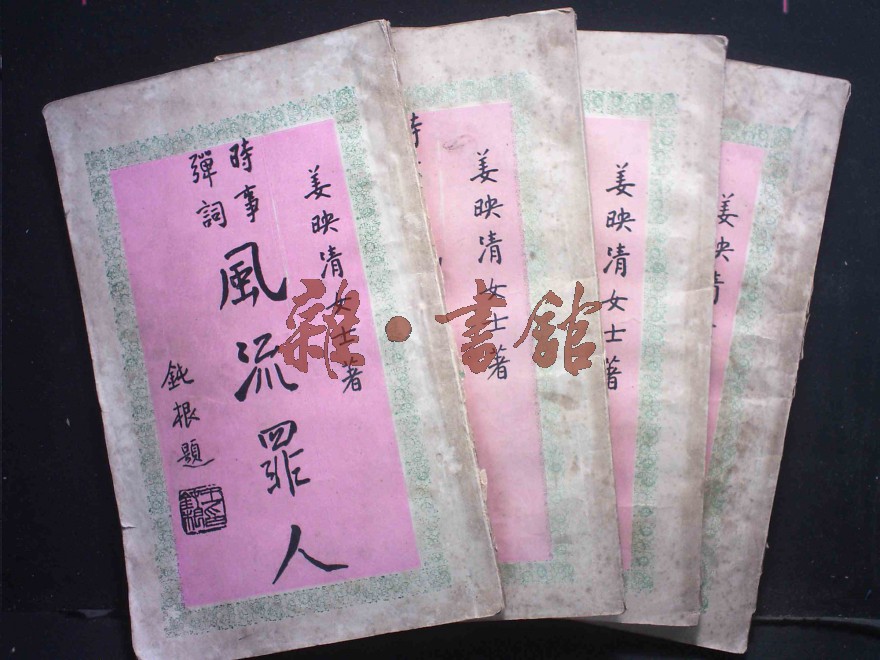 姜映清女士著
時事
彈詞
風流罪人
鈍根題
姜映清女士著
時
姜映清女士著
姜映清
雜·書館